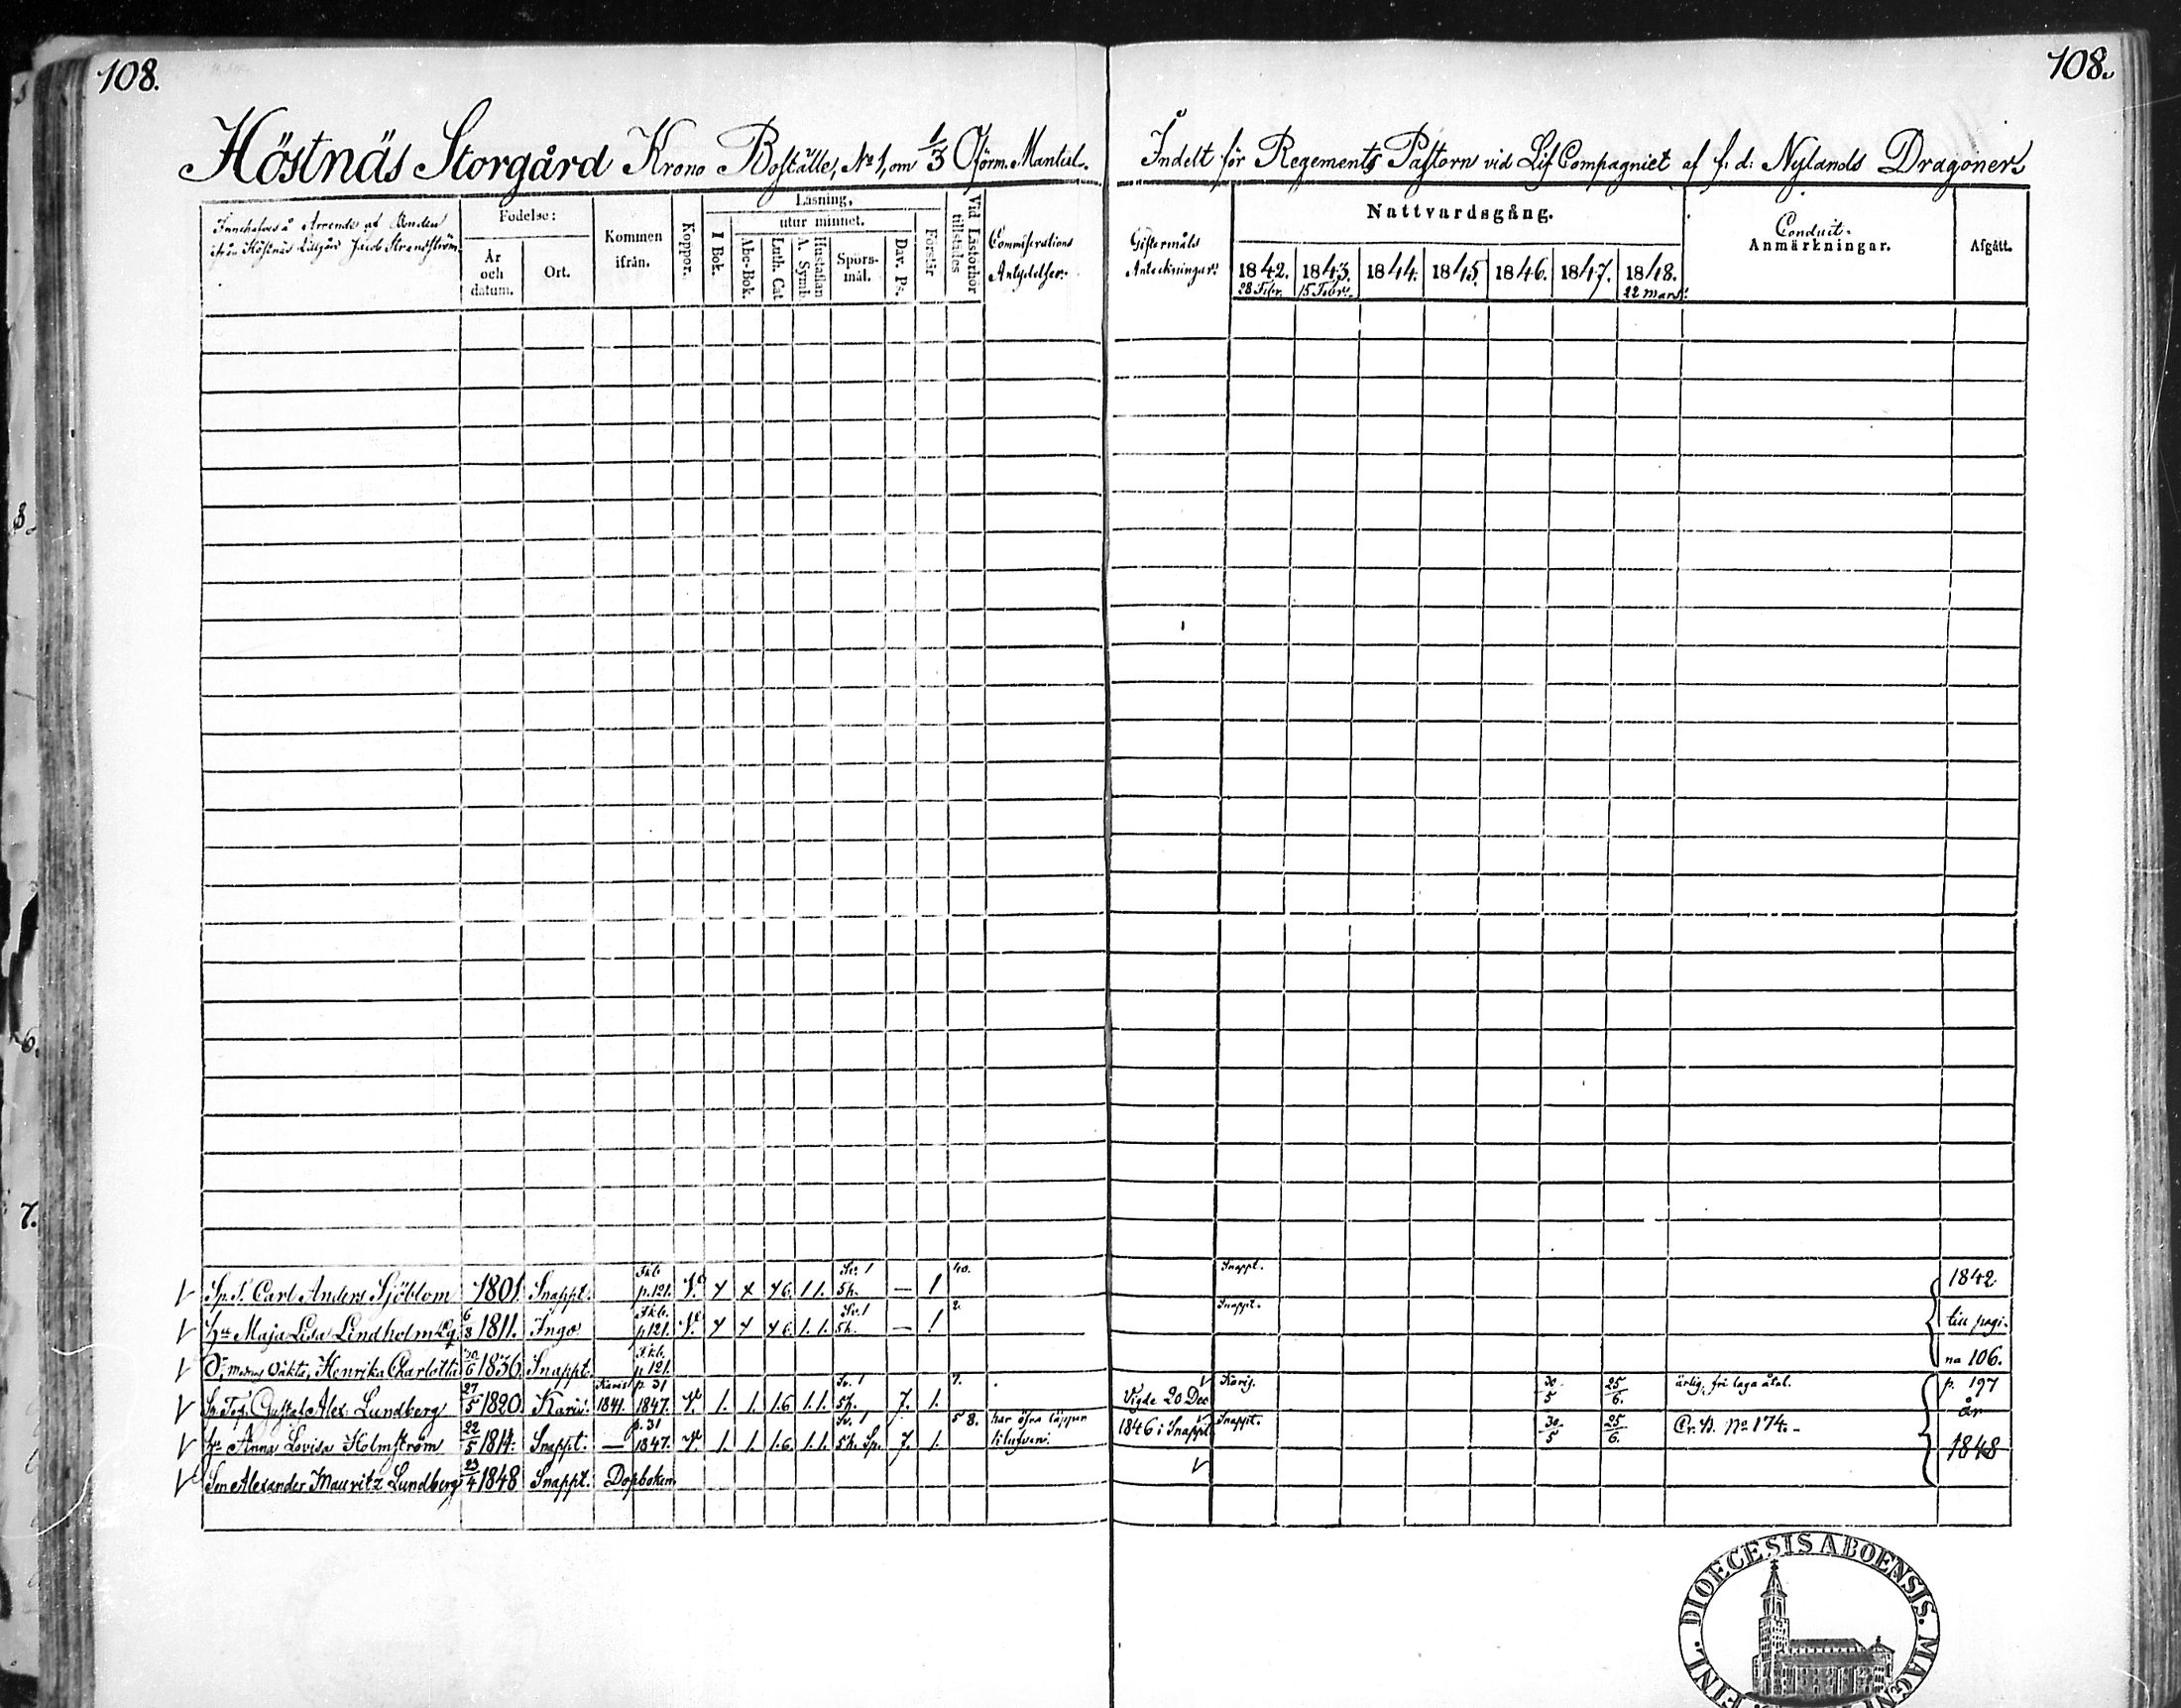 108.
108.
Höstnäs Storgård Krono Boställe, No 1, om 1/3 Oförm. Mantal.
Indelt för Regements Pastorn vid Lif Compagniet af f. d. Nylands Dragoner.
Innehafves å Arrende af Bonden
ifrån Höstnäs Lillgård Jacob Strandström
Födelse:
År och datum.
Ort.
Kommen ifrån.
Koppor.
Läsning,
I Bok.
utur minnet.
Abc-Bok.
Luth. Cat.
Hustaflan A. Symb.
Spörs-mål.
Dav. Ps.
Förstår
Vid Läsförhör tillstädes
Giftermåls Anteckningar.
Nattvardsgång.
1842. 28 Febr.
1843. 15 Febr.
1844.
1845.
1846.
1847.
1848. 22 Mars.
Conduit-
Anmärkningar.
Afgått.
Sp. S. Carl Anders Sjöblom 1801. Snappt. p. 121. 1 1. 5h. — 1 40. Snappt. 1842
Hu Maja Lisa Lindholm 6/8 1811. Ingo p 121. 1. 1. 5h. — 1 2. Snappt. till pagi-
Dotter, Henrika Charlotta 1836. Snappt. p 121. na 106.
Gustaf Alex: Lundberg 27/5 1820. Karis. Karis 1841. p. 31 1847. 1. 1. 1.6 1.1. Sv. 1 5h. 7. 1. 7. Vigde 20 Dec Karis. 30/5 25/6. ärlig, fri laga åtal. p. 197
Hu Anna Lovisa Holmström 22/5 1814. Snappt. — p. 31 1847. 1. 1. 1.6. 1.1. Sv. 1 5h. Sp. 7. 1. 5 8. har öfra läppen 1846 i Snappt. Snappt. 30/5 25/6. No 174.- år
Son Alexander Mauritz Lundberg 23/4 1848 Snappt. Dopboken. 1848
DIOECESIS ABOENSIS. MAGNI
FINL.